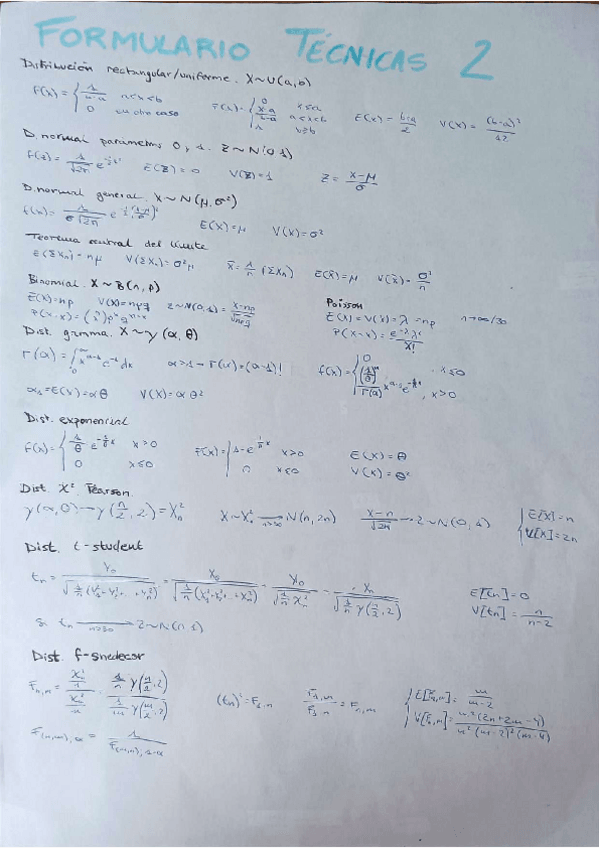 FORMULARIO TÉCNICAS 2
Distribución rectangular/uniforme. X~U(a,b)
f(x) = { 1/(b-a) a<x<b ; 0 en otro caso F(x) = { 0 x≤a ; (x-a)/(b-a) a<x<b ; 1 x≥b E(x) = (b+a)/2 V(x) = (b-a)²/12
D. normal parámetros 0 y 1. Z~N(0,1)
f(z) = 1/√2π e^(-½z²) E(Z) = 0 V(Z) = 1 Z = (x-μ)/σ
D. normal general. X~N(μ,σ²)
f(x) = 1/(σ√2π) e^(-½((x-μ)/σ)²) E(x) = μ V(x) = σ²
Teorema central del límite
E(ΣXn) = nμ V(ΣXn) = σ²μ x̄ = 1/n (ΣXn) E(x̄) = μ V(x̄) = σ²/n
Binomial. X~B(n,p) Poisson
E(X) = np V(X) = npq Z~N(0,1) = (x-np)/√npq E(X) = V(X) = λ = np n→∞/30
P(X=x) = (n x) p^x q^(n-x) P(X=x) = e^(-λ) λ^x / x!
Dist. gamma. X~γ(α,θ)
Γ(α) = ∫₀^∞ x^(α-1) e^(-x) dx α>1 → Γ(α) = (α-1)! f(x) = { 0 x≤0 ; (1/θ)^α / Γ(α) x^(α-1) e^(-1/θ x), x>0
α₁ = E(X) = αθ V(X) = αθ²
Dist. exponencial
f(x) = { 1/θ e^(-1/θ x) x>0 ; 0 x≤0 F(x) = { 1-e^(-1/θ x) x>0 ; 0 x≤0 E(X) = θ V(X) = θ²
Dist. X² Pearson
γ(α,θ) → γ(n/2, 2) = X²n X~X²n →(n>30) N(n,2n) (X-n)/√2n → Z~N(0,1) { E[X] = n ; V[X] = 2n
Dist. t-student
tn = Y₀/√(1/n (Y₁²+Y₂²+...+Yn²)) = X₀/√(1/n (X₁²+X₂²+...+Xn²)) = Y₀/√(1/n X²n) = Xn/√(1/n γ(n/2, 2)) E[tn] = 0 V[tn] = n/(n-2)
Si tn →(n>30) Z~N(0,1)
Dist. f-snedecor
Fn,m = (X²n/n)/(X²m/m) = (1/n γ(n/2, 2))/(1/m γ(m/2, 2)) (tn)² = F1,n = Fn,m { E[Fn,m] = m/(m-2) ; V[Fn,m] = m²(2n+2m-4)/(n²(m-2)²(m-4))
F(m,n),α = 1/F(n,m),1-α